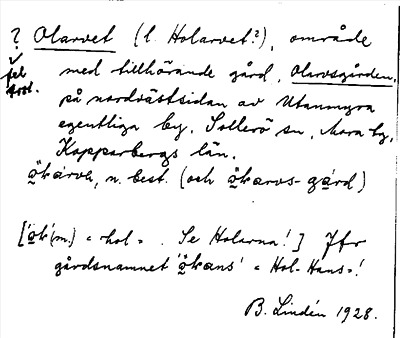 ? Olarvet (l. Holarvet?), område
✓ fel
trol.
med tillhörande gård, Olarvsgården,
på nordvästsidan av Utanmyra
egentliga by. Sollerö sn, Mora tg,
Kopparbergs län.
n. best. (och
(m.) = hol = . Se Holarna!] Jfr
gårdsnamnet = Hol-Hans=!
B. Lindén 1928.